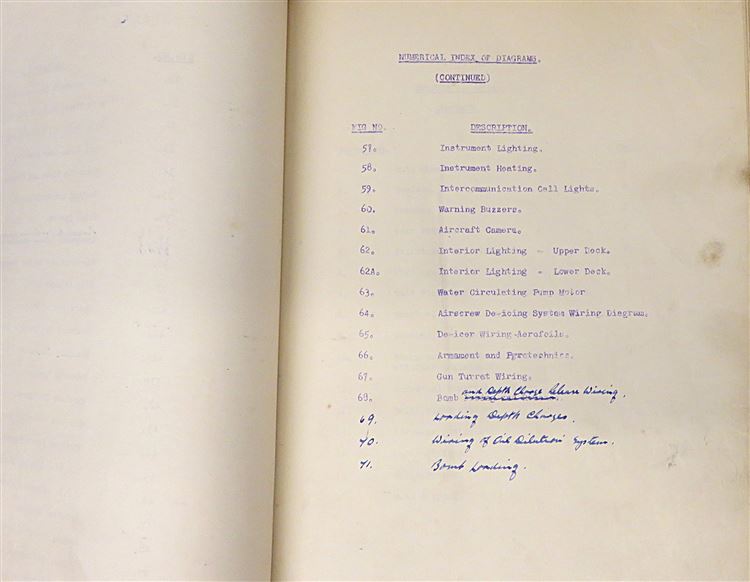 NUMERICAL INDEX OF DIAGRAMS.
(CONTINUED)
FIG NO. DESCRIPTION.
57. Instrument Lighting.
58. Instrument Heating.
59. Intercommunication Call Lights.
60. Warning Buzzers.
61. Aircraft Camera.
62. Interior Lighting - Upper Deck.
62A. Interior Lighting - Lower Deck.
63. Water Circulating Pump Motor
64. Airscrew De-icing System Wiring Diagram.
65. De-icer Wiring-Aerofoils.
66. Armament and Pyrotechnics.
67. Gun Turret Wiring.
68. Bomb and Depth Charge Release Wiring.
69. Loading Depth Charges.
70. Wiring of Oil Dilution System.
71. Bomb Loading.